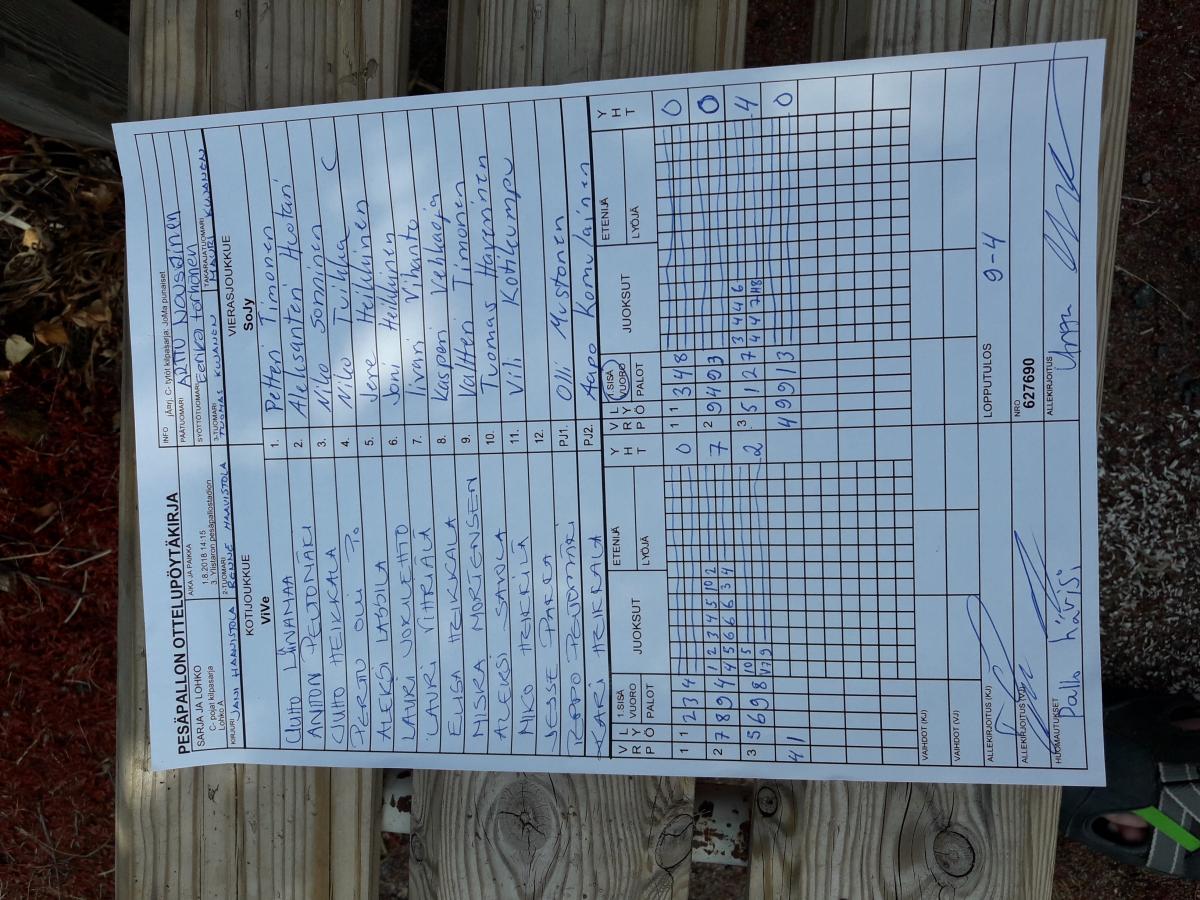 PESÄPALLON OTTELUPÖYTÄKIRJA
SARJA JA LOHKO
C- pojat kilpasarja
Lohko A
AIKA JA PAIKKA
1.8.2018 14:15
3. Ylistaron pesäpallostadion
INFO jAarj. C- tytöt kilpasarja: JoMa punaiset
PÄÄTUOMARI ARTTU NOUSIAINEN
SYÖTTÖTUOMARI Eerika Torhonen
KIRJURI JANI HAAVISTOLA
2-TUOMARI RONNE HAAVISTOLA
3-TUOMARI TUOMAS KUVANEN
TAKARAJATUOMARI MAURI KUVANEN
KOTIJOUKKUE
ViVe
VIERASJOUKKUE
SoJy
JUHO LÄNAMAA 1. Petteri Timonen
ANTON PENJONMÄKI 2. Aleksanteri Huotari
JUHO HEIKKALA 3. Niko Sonninen
PERTTU OLLI 4. Niko Tuikka C
ALEKSI LASSILA 5. Jere Heikkinen
LAURI JOKILEHTO 6. Joni Heikkinen
LAURI VIHRIÄLÄ 7. Iivari Vihanto
ELISA HEIKKALA 8. Kasperi Velhkaoja
MISKA MORTENSEN 9. Valtteri Timonen
ALEKSI SAVELA 10. Tuomas Hayrinen
NIKO HEIKKILÄ 11. Vili Kotikumpu
12.
JESSE PARKA PJ1. Olli Mustonen
ROOPO PENJONMÄKI PJ2. Aapo Komulainen
KARI HEIKKALA
V R Ö L Y P 1.SISÄ VUORO PALOT JUOKSUT ETENIJÄ LYÖJÄ Y H T
V R Ö L Y P 1.SISÄ VUORO PALOT JUOKSUT ETENIJÄ LYÖJÄ Y H T
1 1 2 3 4 0 1 1 3 4 8 0
2 7 8 9 4 1 2 3 4 5 10 2 7 2 9 4 9 3 0
4 5 6 6 6 3 4
3 5 6 9 8 10 5 2 3 5 1 2 7 3 4 4 6 4
4 1 4 9 9 1 3 0
VAIHDOT (KJ)
VAIHDOT (VJ)
ALLEKIRJOITUS (KJ)
LOPPUTULOS 9-4
ALLEKIRJOITUS (VJ)
NRO
627690
HUOMAUTUKSET
Pallo hävisi
ALLEKIRJOITUS